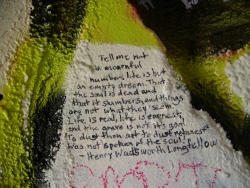 Tell me not
in mournful
numbers, life is but
an empty dream. That
the soul is dead and
that it slumbers, and things
are not what they seem.
Life is real, life is earnest,
and the grave is not its goal
To dust thou art to dust returnest
Was not spoken of the soul.
- Henry Wadsworth Longfellow